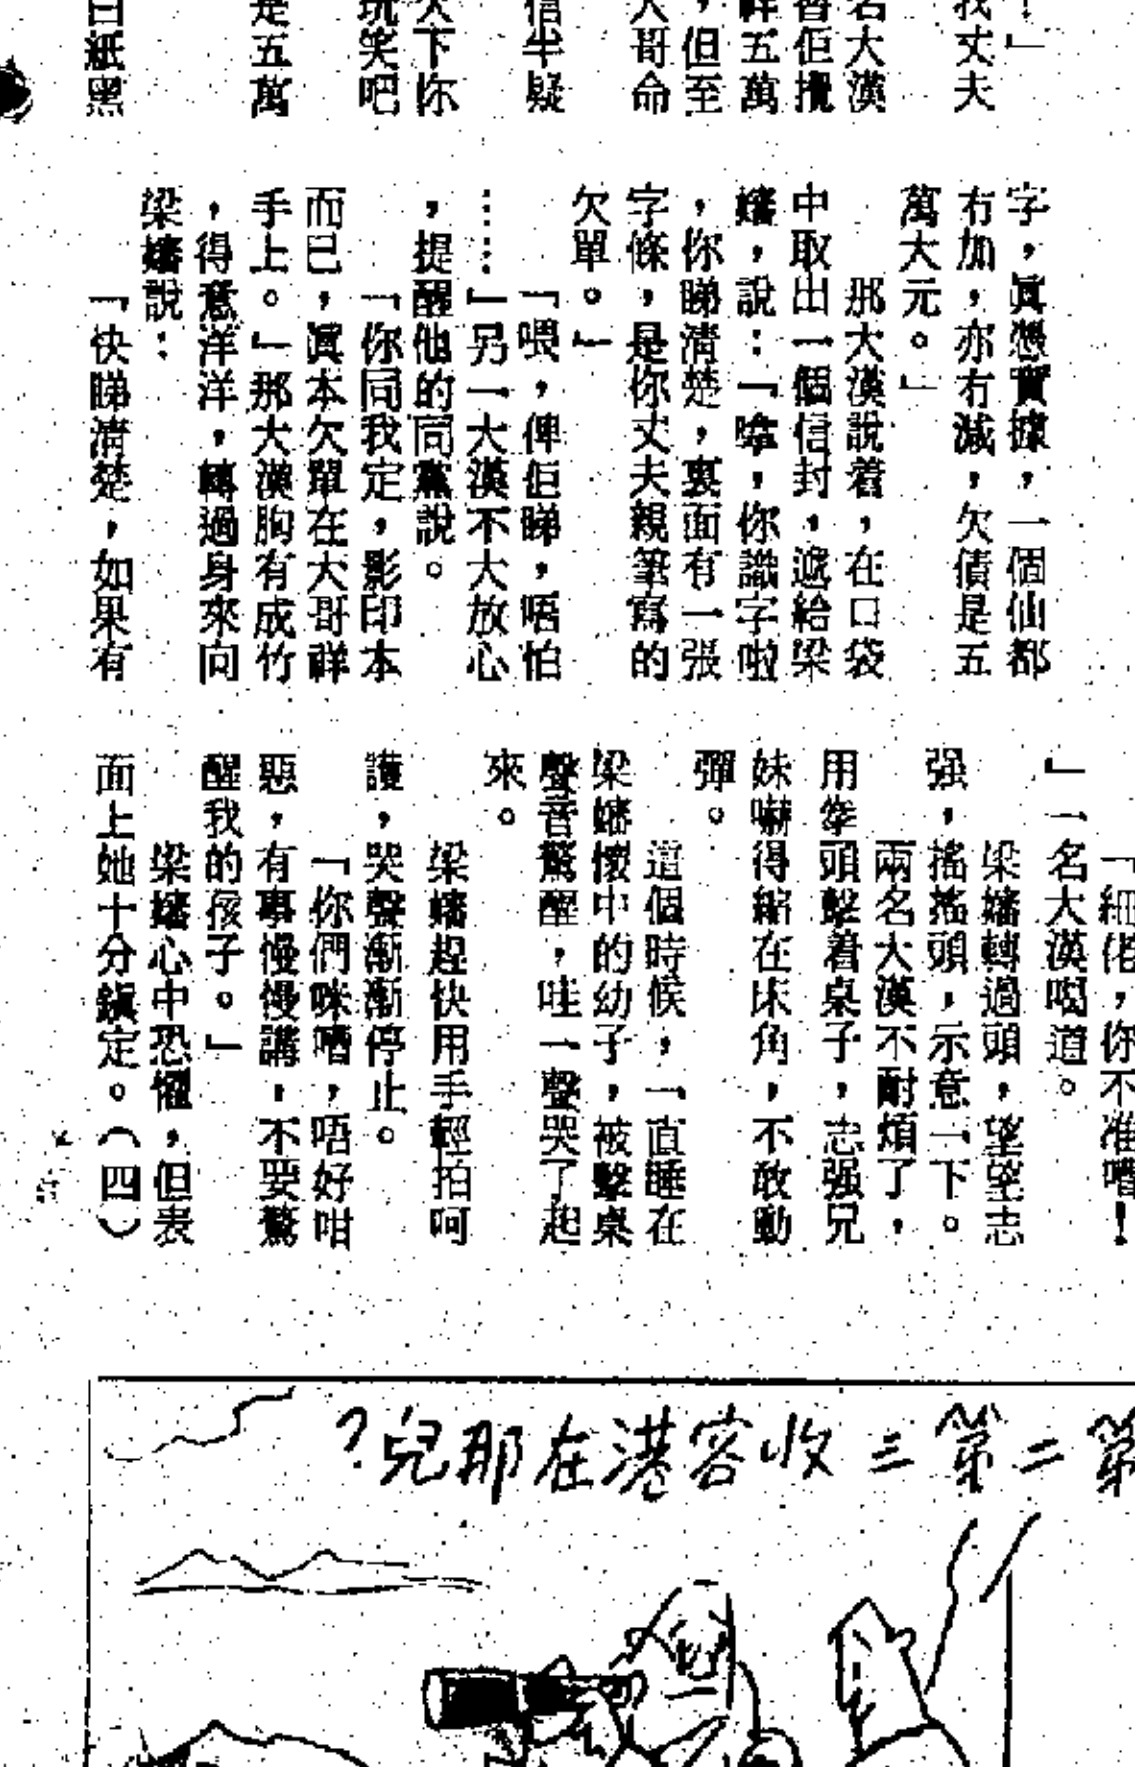 我丈夫
名大漢
咨佢攪
祥五萬
，但至
大哥命
信半疑
天下你
玩笑吧
是五萬
白紙黑
字，眞憑實據，一個仙都
冇加，亦冇減，欠債是五
萬大元。」
那大漢說着，在口袋
中取出一個信封，遞給梁
嬸，說：「嗱，你識字啦
，你睇清楚，裏面有一張
字條，是你丈夫親筆寫的
欠單。」
「喂，俾佢睇，唔怕
……」另一大漢不大放心
，提醒他的同黨說。
「你同我定，影印本
而已，眞本欠單在大哥祥
手上。」那大漢胸有成竹
，得意洋洋，轉過身來向
梁嬸說：
「快睇清楚，如果有
「細佬，你不准嘈！
」一名大漢喝道。
梁嬸轉過頭，望望志
强，搖搖頭，示意一下。
兩名大漢不耐煩了，
用拳頭擊着桌子，志强兄
妹嚇得縮在床角，不敢動
彈。
這個時候，一直睡在
梁嬸懷中的幼子，被擊桌
聲音驚醒，哇一聲哭了起
來。
梁嬸趕快用手輕拍呵
護，哭聲漸漸停止。
「你們咪嘈，唔好咁
惡，有事慢慢講，不要驚
醒我的孩子。」
梁嬸心中恐懼，但表
面上她十分鎮定。（四）
第二第三收容港在那兒？